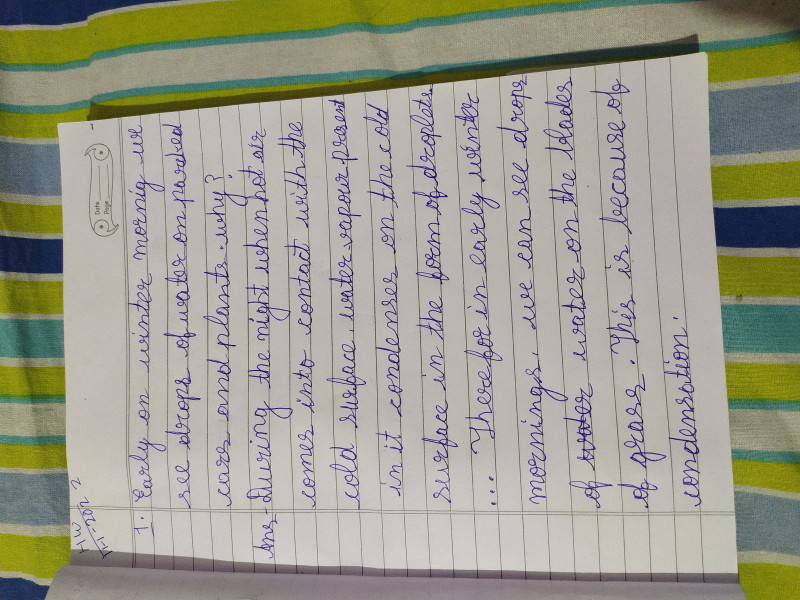 HW
Date
Page
1. Early on winter mornig we
see drops of water on parked
cars and plants. why?
Ans - During the night when hot air
comes into contact with the
cold surface, water vapour present
in it condenses on the cold
surface in the form of droplets
... Therefor in early winter
mornings, we can see drops
of water water on the blades
of grass. This is because of
condensation.